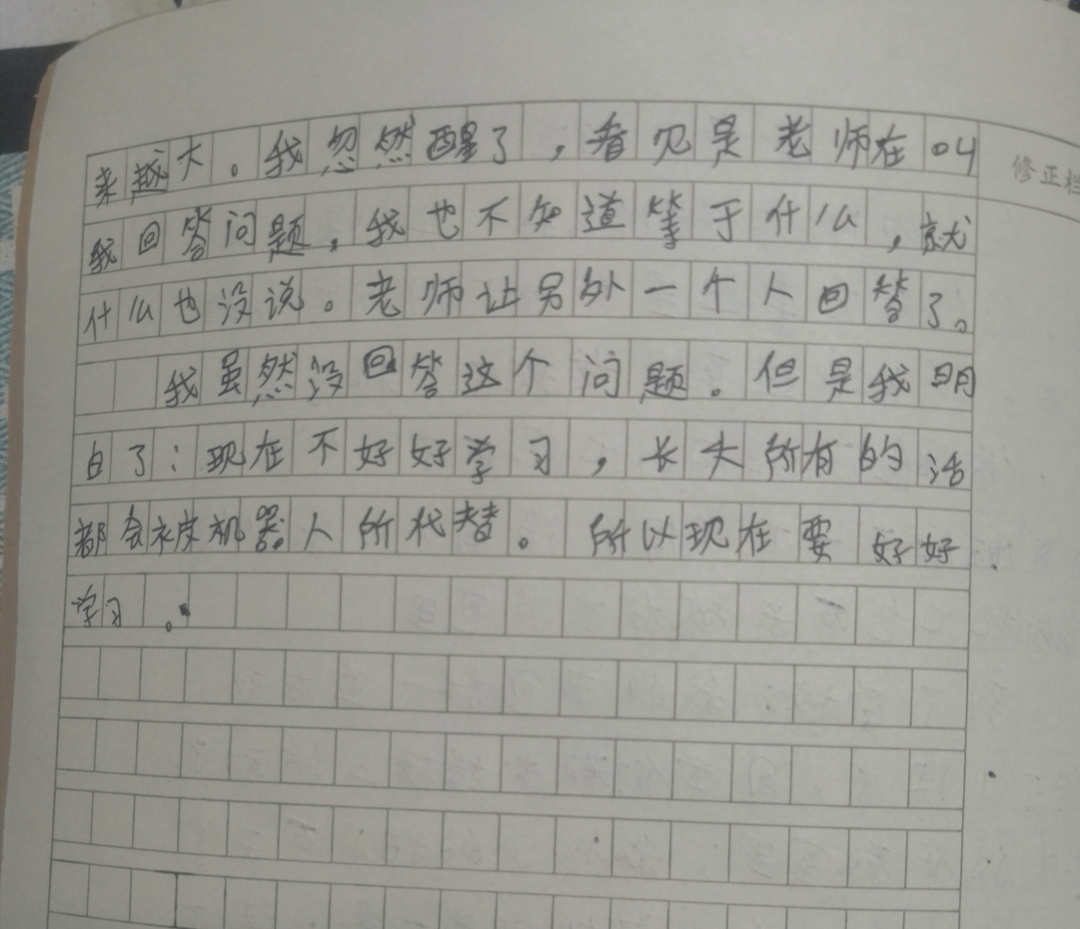 来越大。我忽然醒了，看见是老师在叫
修正栏
我回答问题，我也不知道等于什么，就
什么也没说。老师让另外一个人回答了。
我虽然没回答这个问题。但是我明
白了：现在不好好学习，长大所有的活
都会被机器人所代替。所以现在要好好
学习。